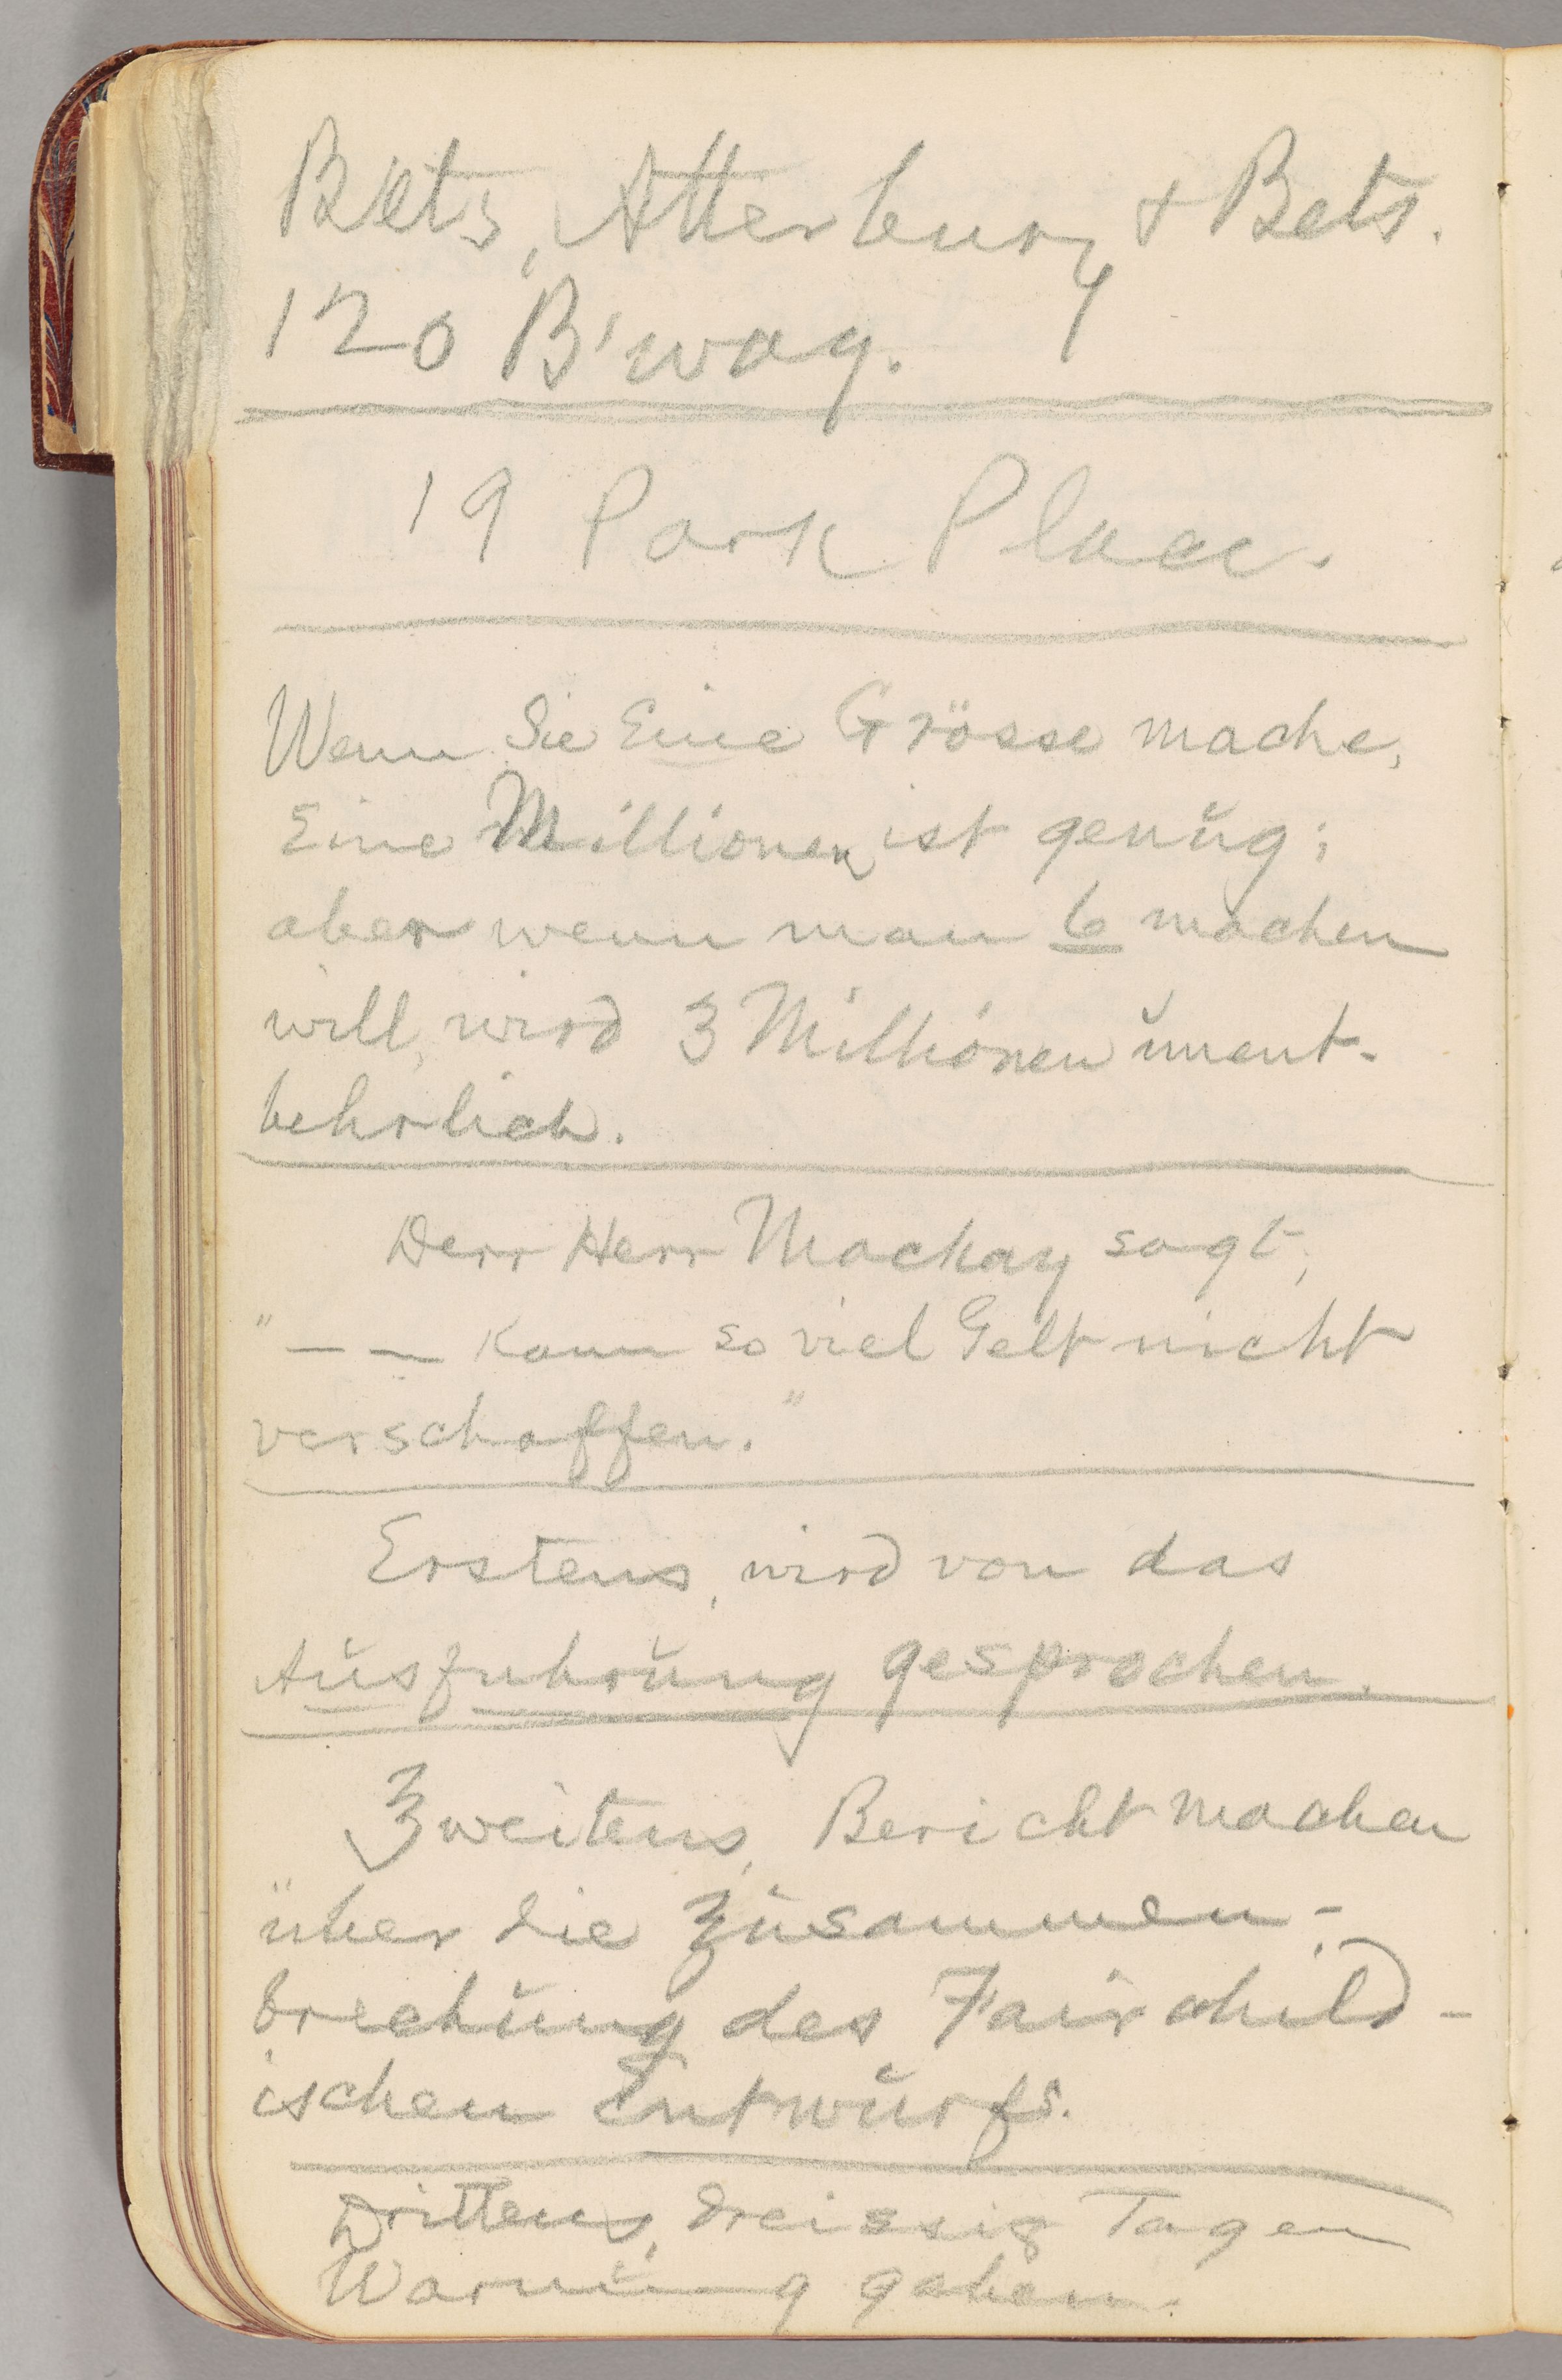 Bets, Atterbury & Bets.
120 B'way.
19 Park Place.
Wenn Sie Eine Grösse mache,
Eine Millionen ist genŭg;
aber wenn man 6 machen
will, wird 3 Millionen ŭnent-
behrlich.
Derr Herr Mackay sagt,
"— — Kann so viel Gelt nicht
verschaffen."
Erstens, wird von das
Aŭsfuhrŭng gesprochen.
Zweitens, Bericht machen
über die Zŭsammen-
brechŭng des Fairchild-
ischen Entwŭrfs.
Drittens, dreissig Tagen
Warnŭng gaben.